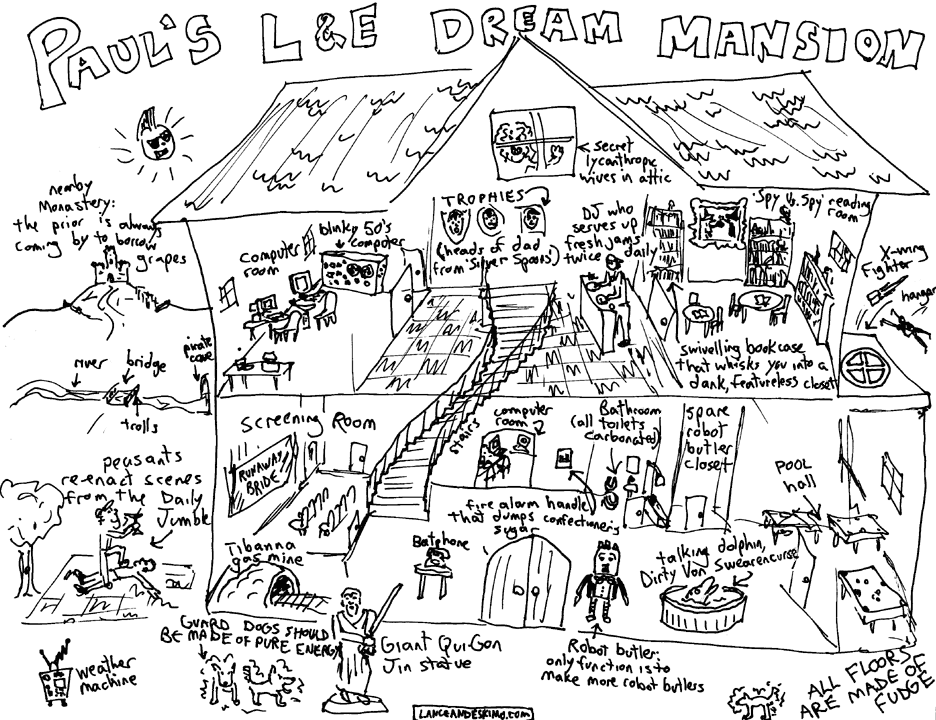 PAUL'S L&E DREAM MANSION
secret
lycanthropic
wives in attic
nearby
Monastery:
the prior is always
coming by to borrow
grapes
TROPHIES
(heads of dad
from 'Silver Spoons')
DJ who
serves up
fresh jams
twice daily
'Spy Vs. Spy' reading
room
blinky 50's
computer
computer
room
X-wing
Fighter
hangar
swivelling bookcase
that whisks you into a
dank, featureless closet
river
bridge
pirate
cave
trolls
SCREENING ROOM
RUNAWAY
BRIDE
stairs
computer
room
Bathroom
(all toilets
carbonated)
spare
robot
butler
closet
POOL
hall
peasants
re-enact scenes
from the Daily
Jumble
fire alarm handle
that dumps confectionery
sugar
Tibanna
gas mine
Batphone
talking dolphin,
Dirty Von Swearencurse
GUARD DOGS SHOULD
BE MADE OF PURE ENERGY
Giant Qui-Gon
Jin statue
Robot butler:
only function is to
make more robot butlers
weather
machine
ALL FLOORS
ARE MADE OF
FUDGE
LANCEANDESKIMO.COM